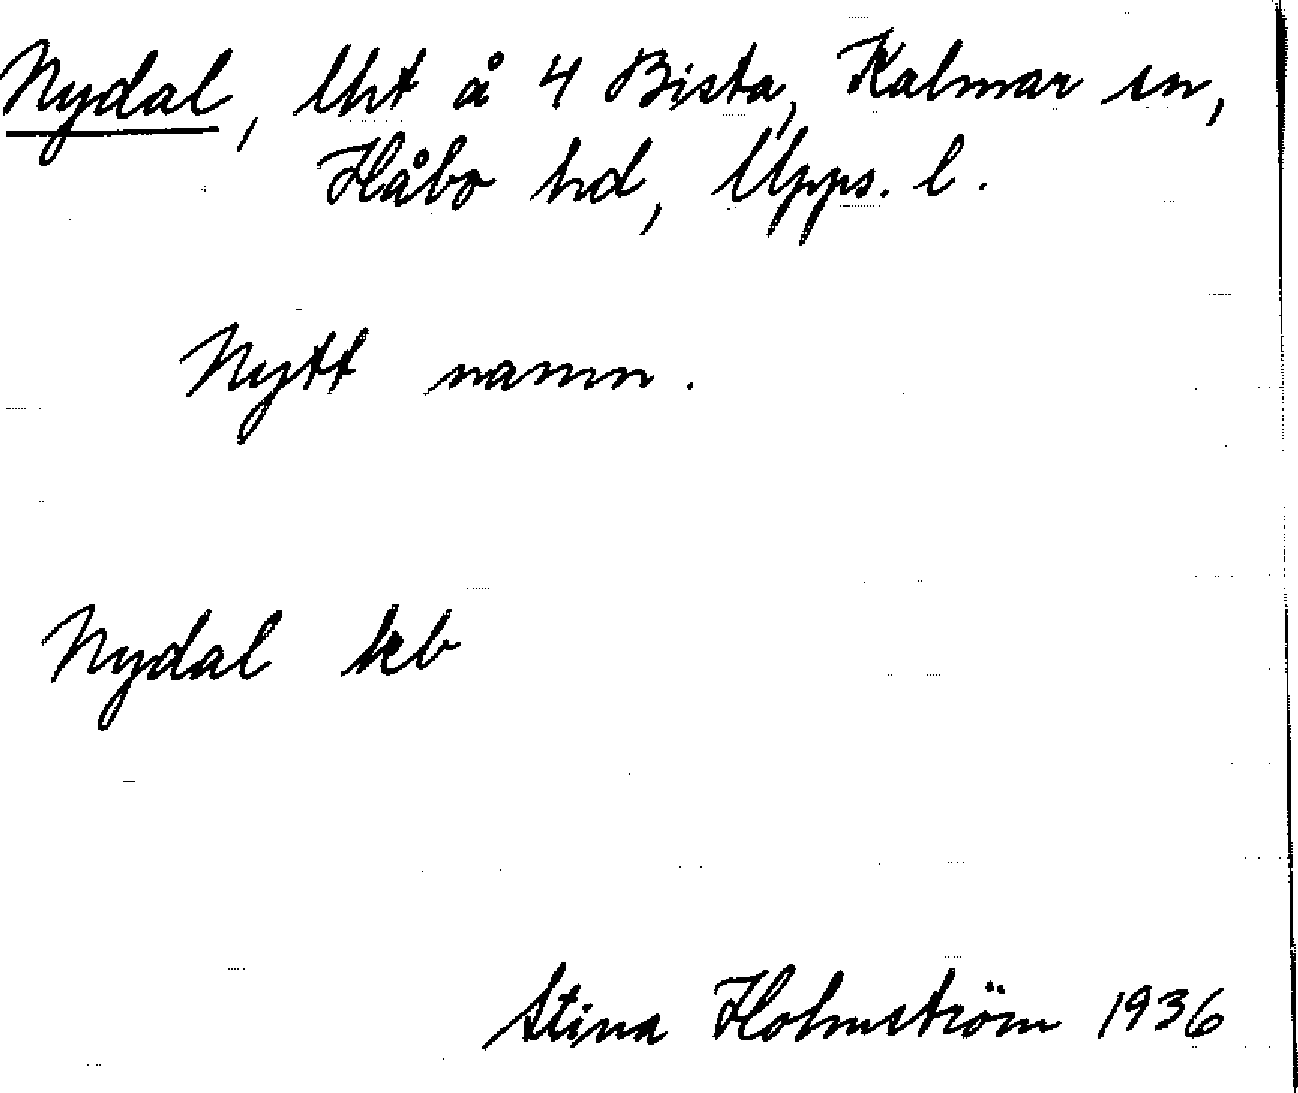 Nydal, lht å 4 Bista, Kalmar sn,
Håbo hd, Upps. l.
Nytt namn.
Nydal kb
Stina Holmström 1936